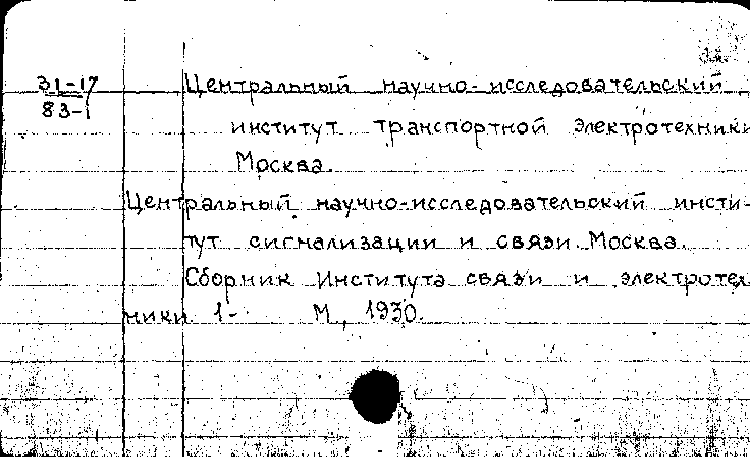 31-17
83-1
Центральный научно-исследовательский
институт транспортной электротехники
Москва.
Центральный научно-исследовательский инсти-
тут сигнализации и связи. Москва.
Сборник Института связи и электротех
ники. 1- М, 1930.